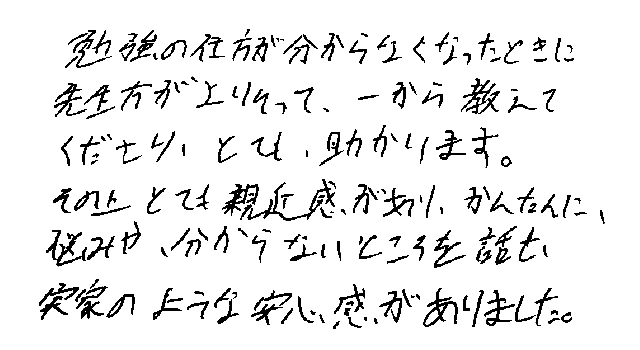 勉強の仕方が分からなくなったときに
先生方がよりそって、一から教えて
くださり、とても、助かります。
その上とても親近感があり、かんたんに、
悩みや、分からないところを話せ、
実家のような安心感がありました。